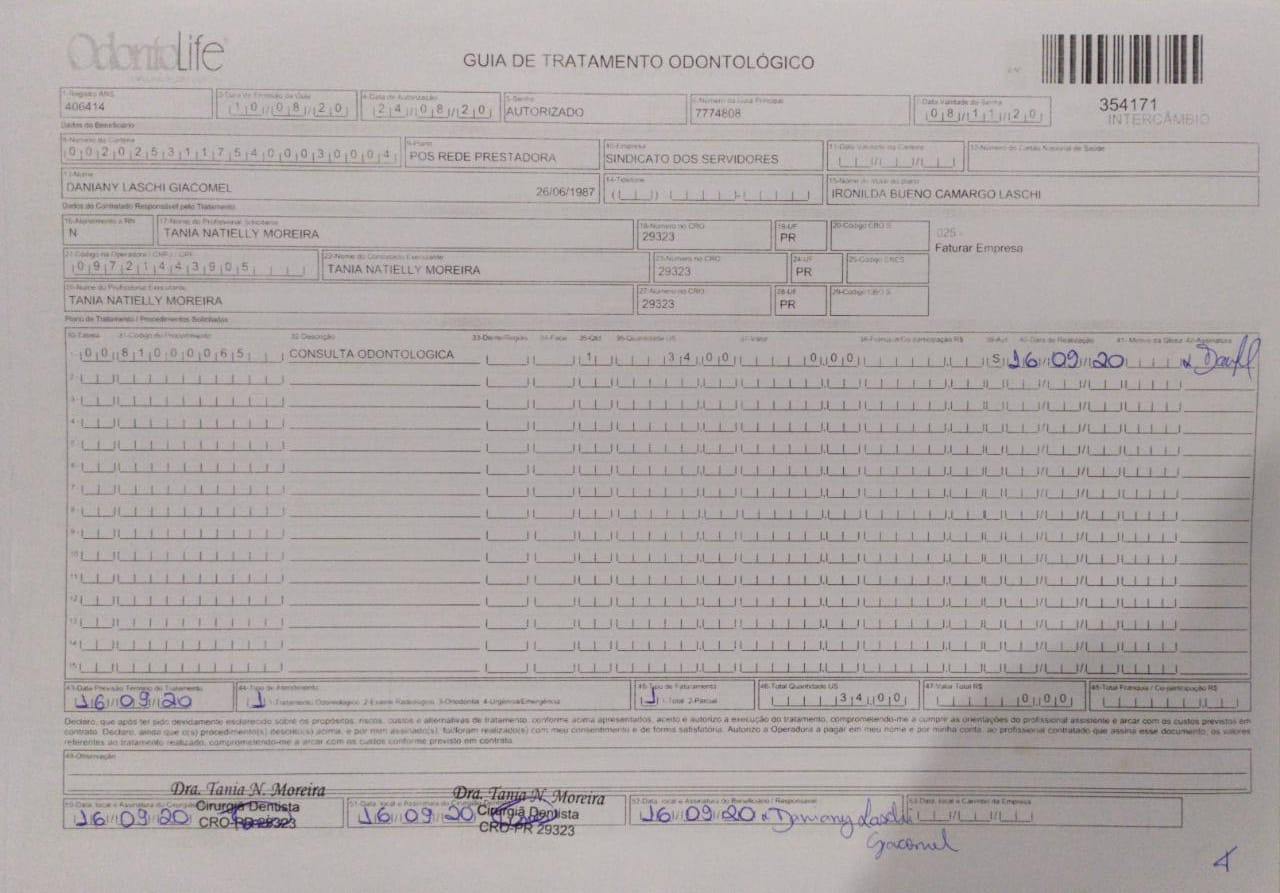 OdontoLife
GUIA DE TRATAMENTO ODONTOLÓGICO
354171
INTERCÂMBIO
1-Registro ANS
406414
3-Data de Emissão da Guia
10/08/20
4-Data de Autorização
24/08/20
5-Senha
AUTORIZADO
6-Número da Guia Principal
7774808
7-Data Validade da Senha
08/11/20
Dados do Beneficiário
8-Número da Carteira
00202531175400030004
9-Plano
POS REDE PRESTADORA
10-Empresa
SINDICATO DOS SERVIDORES
11-Data Validade da Carteira
12-Número do Cartão Nacional de Saúde
13-Nome
DANIANY LASCHI GIACOMEL 26/06/1987
14-Telefone
15-Nome do titular do plano
IRONILDA BUENO CAMARGO LASCHI
Dados do Contratado Responsável pelo Tratamento
16-Atendimento a RN
N
17-Nome do Profissional Solicitante
TANIA NATIELLY MOREIRA
18-Número no CRO
29323
19-UF
PR
20-Código CBO S
025 -
Faturar Empresa
21-Código na Operadora / CNPJ / CPF
09721443905
22-Nome do Contratado Executante
TANIA NATIELLY MOREIRA
23-Número no CRO
29323
24-UF
PR
25-Código CNES
26-Nome do Profissional Executante
TANIA NATIELLY MOREIRA
27-Número no CRO
29323
28-UF
PR
29-Código CBO S
Plano de Tratamento / Procedimentos Solicitados
30-Tabela 31-Código do Procedimento 32-Descrição 33-Dente/Região 34-Face 35-Qtd 36-Quantidade US 37-Valor 38-Franquia/Co-participação R$ 39-Aut 40-Data de Realização 41-Motivo da Glosa 42-Assinatura
1- 00 81000065 CONSULTA ODONTOLOGICA 1 34 00 0 00 S 16/09/20 x
2-
3-
4-
5-
6-
7-
8-
9-
10-
11-
12-
13-
14-
15-
43-Data Previsão Término do Tratamento
16/09/20
44-Tipo de Atendimento
1 1-Tratamento Odontológico 2-Exame Radiológico 3-Ortodontia 4-Urgência/Emergência
45-Tipo de Faturamento
1 1-Total 2-Parcial
46-Total Quantidade US
34 00
47-Valor Total R$
0 00
48-Total Franquia / Co-participação R$
Declaro, que após ter sido devidamente esclarecido sobre os propósitos, riscos, custos e alternativas de tratamento, conforme acima apresentados, aceito e autorizo a execução do tratamento, comprometendo-me a cumprir as orientações do profissional assistente e arcar com os custos previstos em
contrato. Declaro, ainda que o(s) procedimento(s) descrito(s) acima, e por mim assinado(s), foi/foram realizado(s) com meu consentimento e de forma satisfatória. Autorizo a Operadora a pagar em meu nome e por minha conta, ao profissional contratado que assina esse documento, os valores
referentes ao tratamento realizado, comprometendo-me a arcar com os custos conforme previsto em contrato.
49-Observação
50-Data, local e Assinatura do Cirurgião
16/09/20
Dra. Tania N. Moreira
Cirurgiã Dentista
CRO-PR 29323
51-Data, local e Assinatura do Cirurgião
16/09/20
Dra. Tania N. Moreira
Cirurgiã Dentista
CRO-PR 29323
52-Data, local e Assinatura do Beneficiário / Responsável
16/09/20 x Daniany Laschi
Giacomel
53-Data, local e Carimbo da Empresa